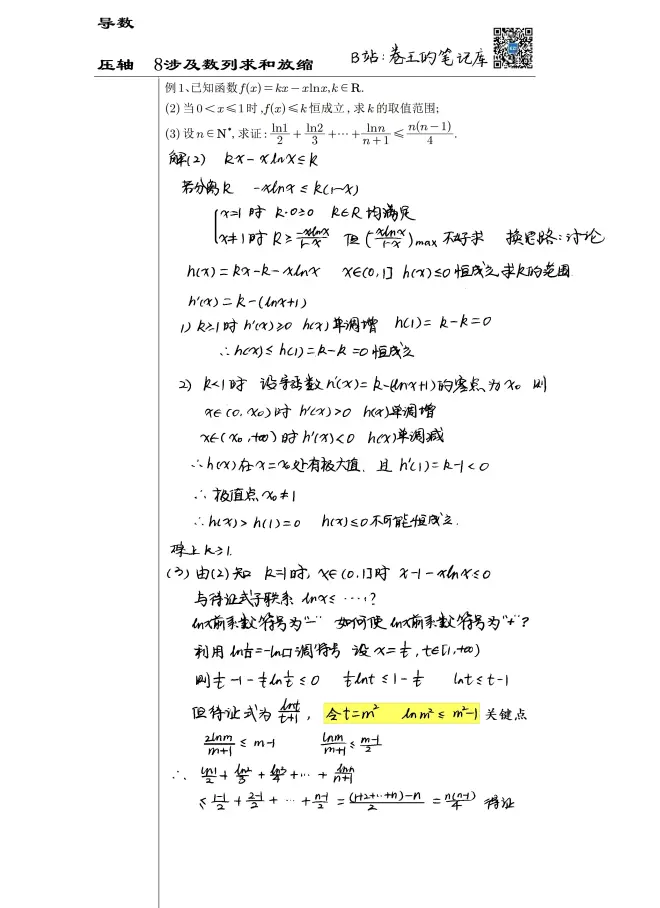 导数
压轴 8涉及数列求和放缩 B站:卷王的笔记库
例1、已知函数f(x)=kx−xlnx,k∈R.
(2)当0<x≤1时,f(x)≤k恒成立,求k的取值范围;
(3)设n∈N*,求证:ln1/2+ln2/3+⋯+lnn/n+1≤n(n−1)/4.
解(2) kx-xlnx≤k
若分离k -xlnx≤k(1-x)
{x=1时 k·0≥0 k∈R均满足
x≠1时 k≥-xlnx/1-x 但(-xlnx/1-x)max 不好求 换思路:讨论
h(x)=kx-k-xlnx x∈(0,1] h(x)≤0恒成立求k的范围
h'(x)=k-(lnx+1)
1) k≥1时 h'(x)≥0 h(x)单调增 h(1)=k-k=0
∴h(x)≤h(1)=k-k=0恒成立
2) k<1时 设导函数h'(x)=k-(lnx+1)的零点为x₀ 则
x∈(0,x₀)时h'(x)>0 h(x)单调增
x∈(x₀,+∞)时h'(x)<0 h(x)单调减
∴h(x)在x=x₀处有极大值,且h'(1)=k-1<0
∴极值点x₀≠1
∴h(x)>h(1)=0 h(x)≤0不可能恒成立.
综上k≥1.
(3)由(2)知 k=1时,x∈(0,1]时 x-1-xlnx≤0
与待证式子联系 lnx≤⋯⋯?
lnx前系数符号为"-" 如何使lnx前系数符号为"+"?
利用ln1/□=-ln□调符号 设x=1/t,t∈[1,+∞)
则1/t-1-1/t ln1/t≤0 1/t lnt≤1-1/t lnt≤t-1
但待证式为lnt/t+1,令t=m² lnm²≤m²-1 关键点
2lnm/m+1≤m-1 lnm/m+1≤m-1/2
∴ ln1/2+ln2/3+ln3/4+⋯+lnn/n+1
≤1-1/2+2-1/2+⋯+n-1/2=(1+2+⋯+n)-n/2=n(n-1)/4 得证